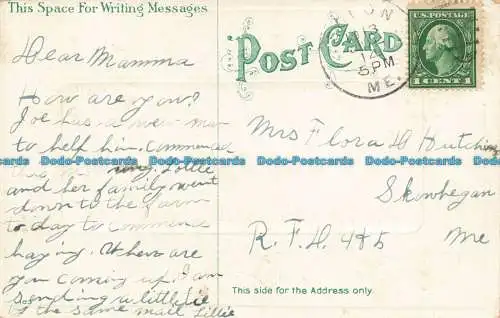 This Space For Writing Messages
POST CARD
U.S. POSTAGE
1 CENT 1
5 PM
ME.
Dear Mamma
How are you?
Joe has a new man
to help him. Commence
Lottie
and her family went
down to the farm
to day to commence
haying. When are
you coming up. I am
sending a little
the same mail Lillie
Mrs Flora H Hutchins
Skowhegan
R.F.D. 4
Me
This side for the Address only.
Dodo-Postcards Dodo-Postcards Dodo-Postcards Dodo-Postcards Dodo-Postcards